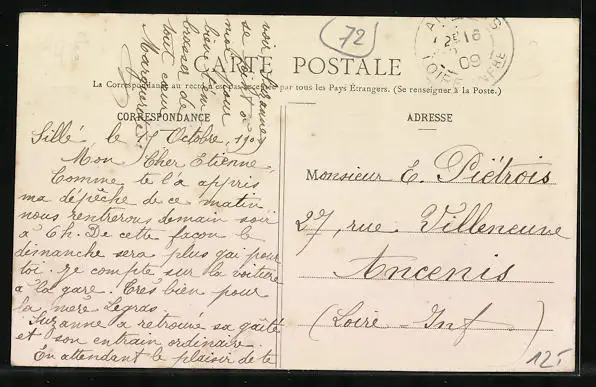 72
CARTE POSTALE
La Correspondance au recto n'est pas acceptée par tous les Pays Étrangers. (Se renseigner à la Poste.)
CORRESPONDANCE
Sillé, le 15 Octobre, 1909
Mon Cher Etienne,
Comme te l'a appris
ma dépêche de ce matin
nous rentrerons demain soir
à 6h. De cette façon le
dimanche sera plus gai pour
toi. Je compte sur la voiture
à la gare. Très bien pour
la mère Legras.
Suzanne a retrouvé sa gaîté
et son entrain ordinaire.
En attendant le plaisir de te
voir Suzanne
se joint à
moi pour
bien
de
tout cœur
Marguerite.
ADRESSE
Monsieur E. Piétrois
27, rue Villeneuve
Ancenis
(Loire-Inf)
09
12F